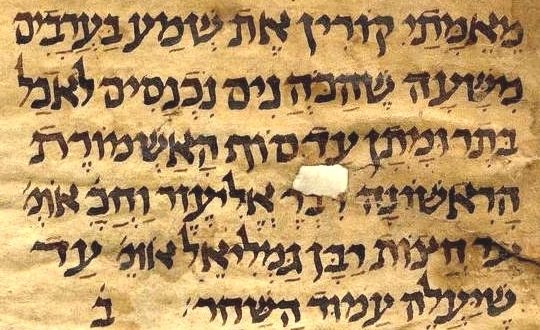 מאמתי קורין את שמע בערבים
משעה שהכהנים נכנסים לאכל
בתרומתן עד סוף האשמורת
הראשונה דבר׳ אליעזר וחכ׳ אומ׳
עד חצות רבן גמליאל אומ׳ עד
שיעלה עמוד השחר ב